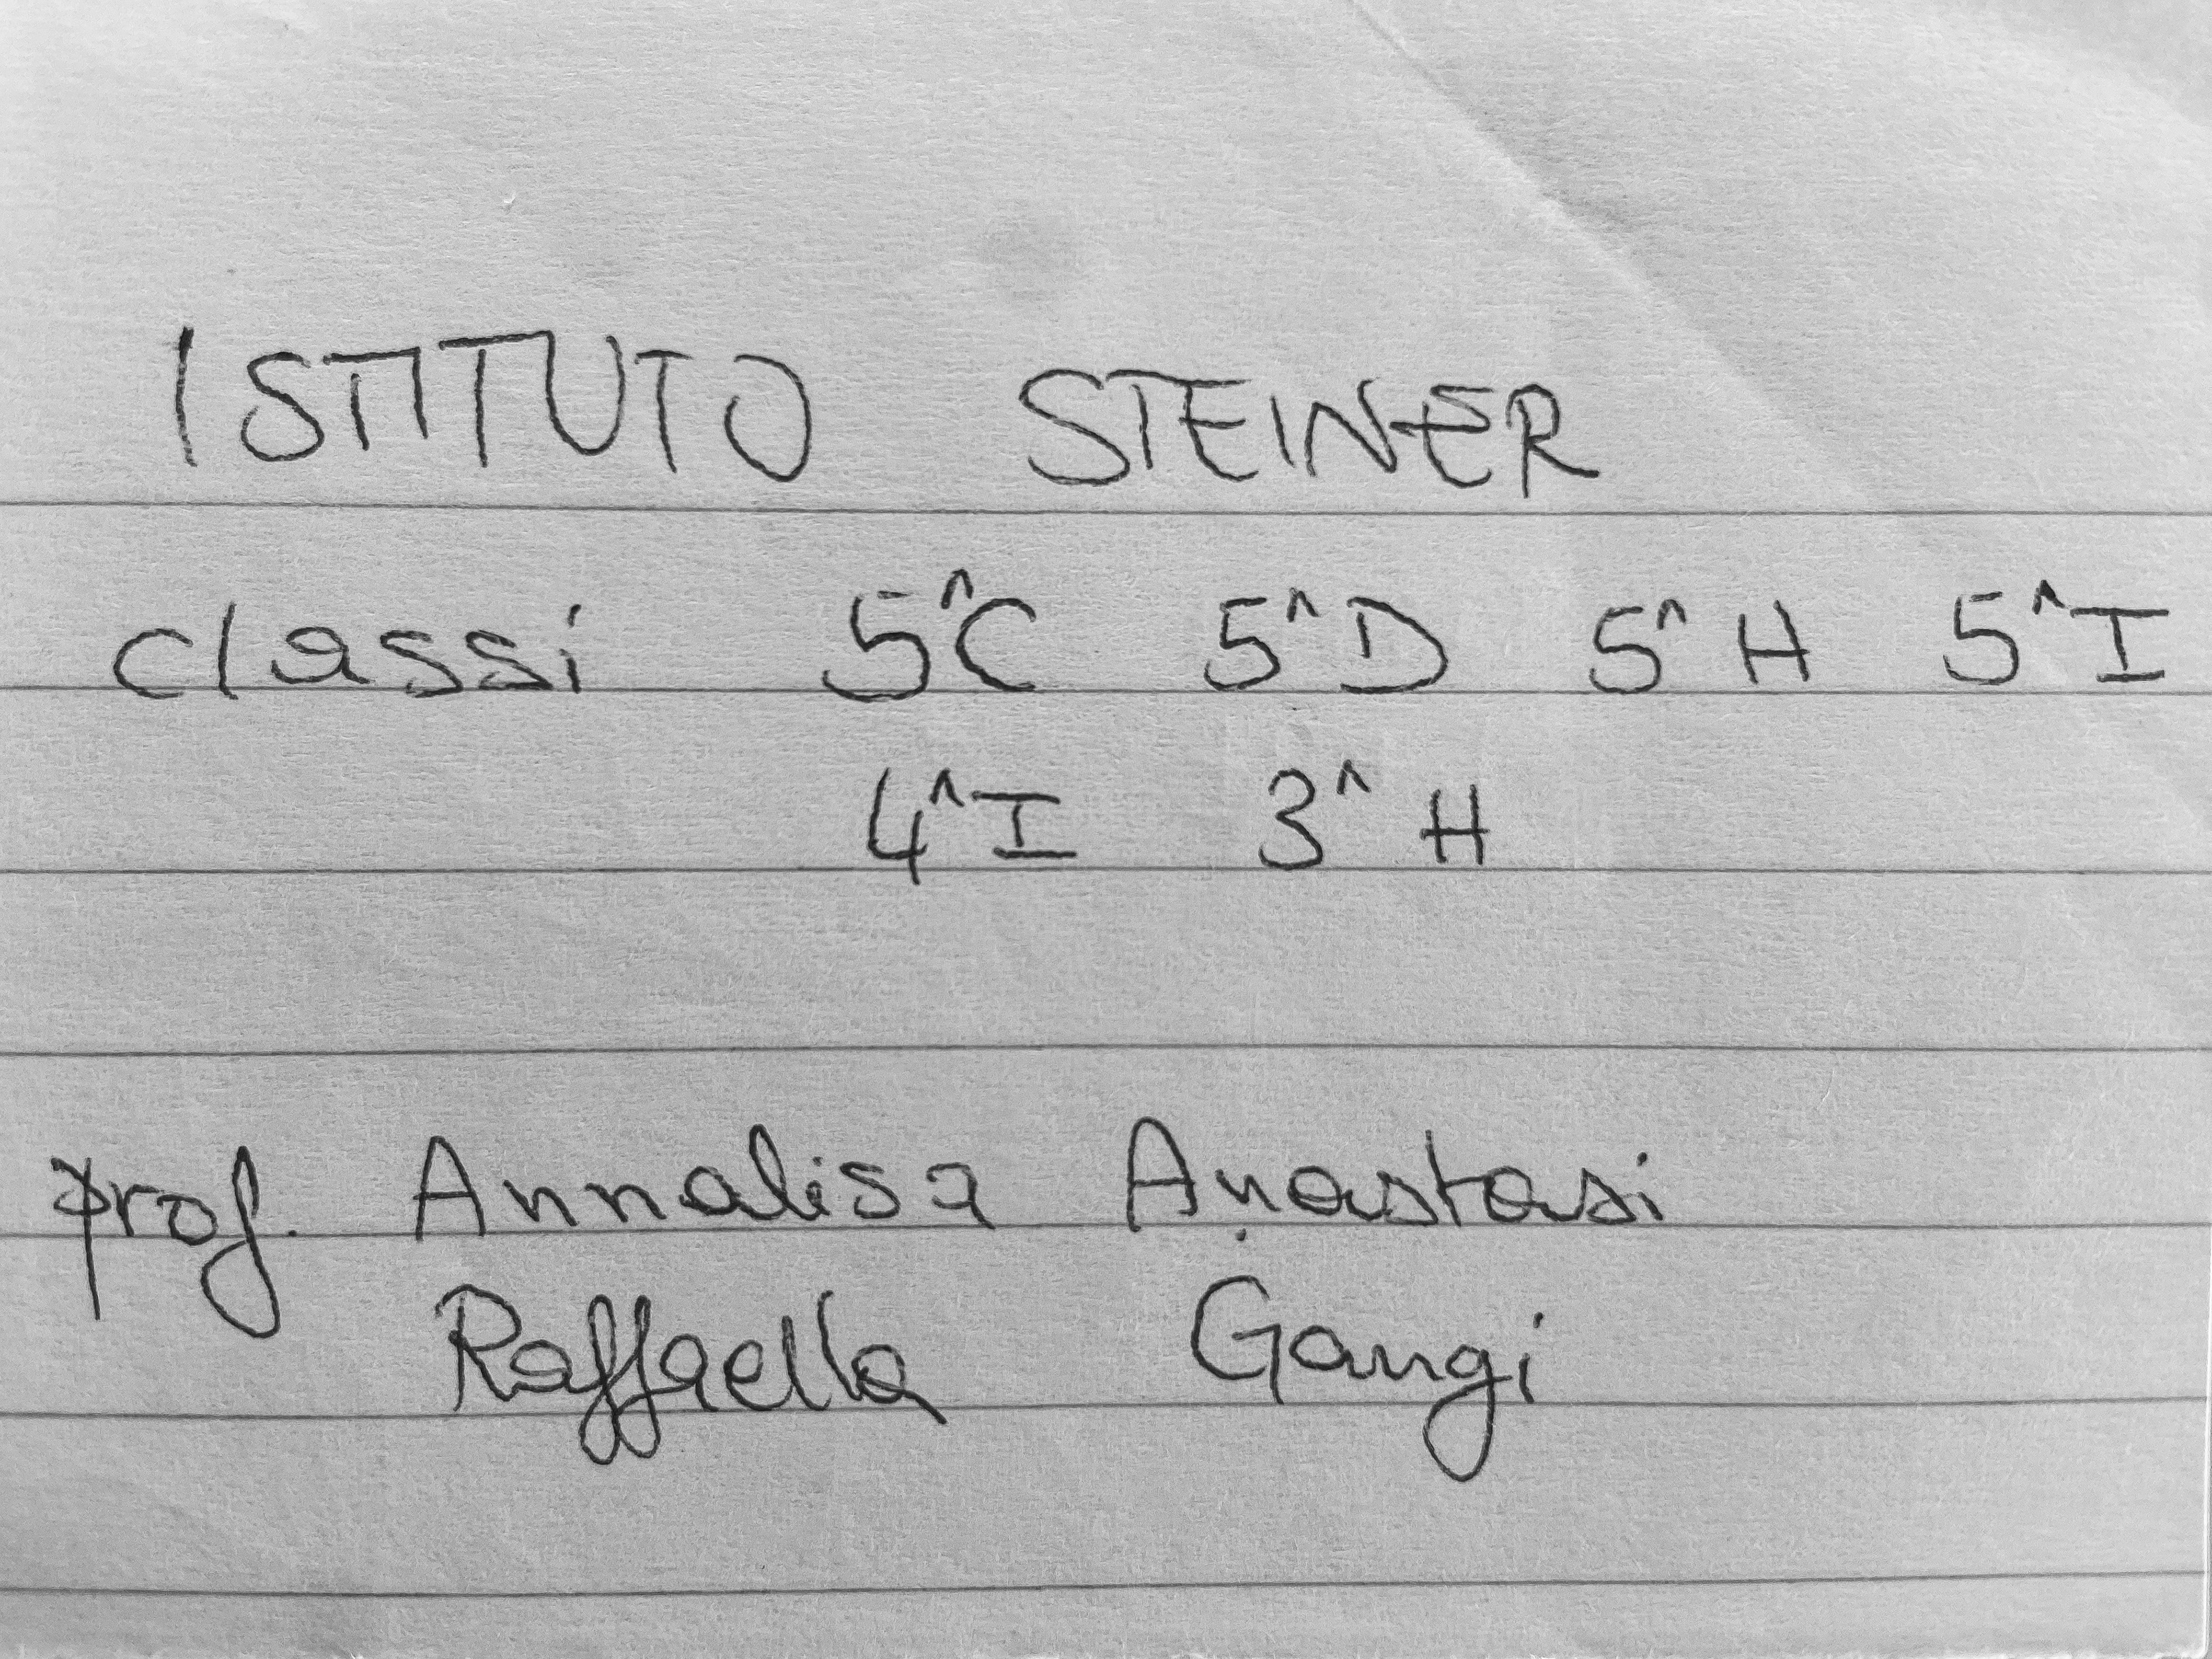 ISTITUTO STEINER
classi 5^C 5^D 5^H 5^I
4^I 3^H
prof. Annalisa Anastasi
Raffaella Gangi